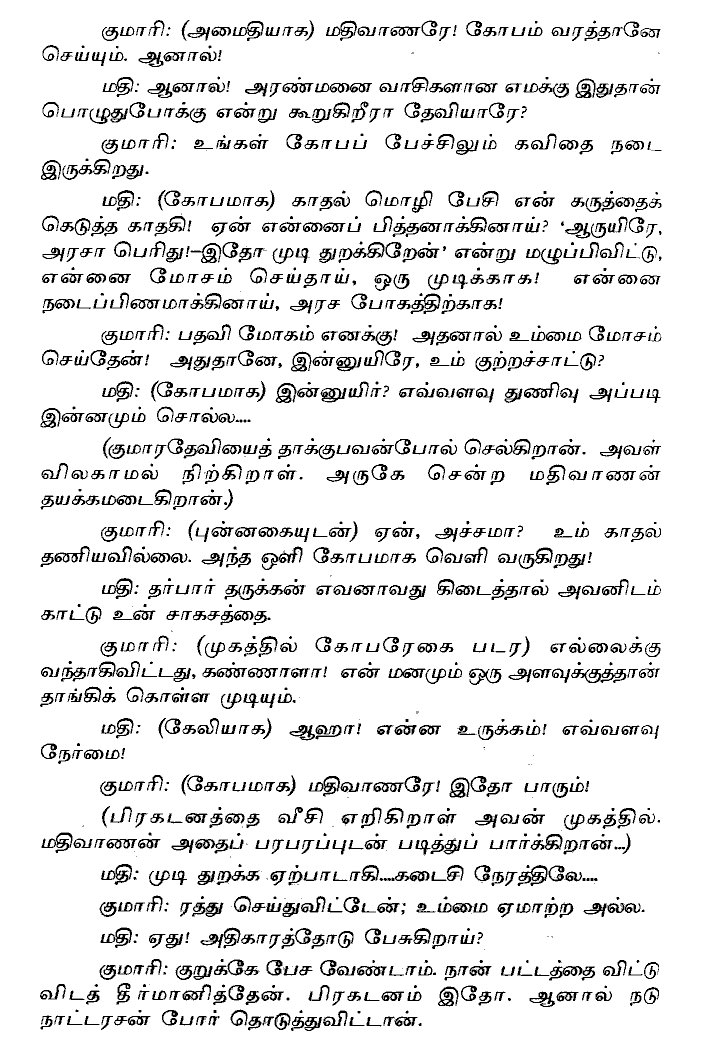 குமாரி: (அமைதியாக) மதிவாணரே! கோபம் வரத்தானே
செய்யும். ஆனால்!
மதி: ஆனால்! அரண்மனை வாசிகளான எமக்கு இதுதான்
பொழுதுபோக்கு என்று கூறுகிறீரா தேவியாரே?
குமாரி: உங்கள் கோபப் பேச்சிலும் கவிதை நடை
இருக்கிறது.
மதி: (கோபமாக) காதல் மொழி பேசி என் கருத்தைக்
கெடுத்த காதகி! ஏன் என்னைப் பித்தனாக்கினாய்? 'ஆருயிரே,
அரசா பெரிது!-இதோ முடி துறக்கிறேன்' என்று மழுப்பிவிட்டு,
என்னை மோசம் செய்தாய், ஒரு முடிக்காக! என்னை
நடைப்பிணமாக்கினாய், அரச போகத்திற்காக!
குமாரி: பதவி மோகம் எனக்கு! அதனால் உம்மை மோசம்
செய்தேன்! அதுதானே, இன்னுயிரே, உம் குற்றச்சாட்டு?
மதி: (கோபமாக) இன்னுயிர்? எவ்வளவு துணிவு அப்படி
இன்னமும் சொல்ல....
(குமாரதேவியைத் தாக்குபவன்போல் செல்கிறான். அவள்
விலகாமல் நிற்கிறாள். அருகே சென்ற மதிவாணன்
தயக்கமடைகிறான்.)
குமாரி: (புன்னகையுடன்) ஏன், அச்சமா? உம் காதல்
தணியவில்லை. அந்த ஒளி கோபமாக வெளி வருகிறது!
மதி: தர்பார் தருக்கன் எவனாவது கிடைத்தால் அவனிடம்
காட்டு உன் சாகசத்தை.
குமாரி: (முகத்தில் கோபரேகை படர) எல்லைக்கு
வந்தாகிவிட்டது, கண்ணாளா! என் மனமும் ஒரு அளவுக்குத்தான்
தாங்கிக் கொள்ள முடியும்.
மதி: (கேலியாக) ஆஹா! என்ன உருக்கம்! எவ்வளவு
நேர்மை!
குமாரி: (கோபமாக) மதிவாணரே! இதோ பாரும்!
(பிரகடனத்தை வீசி எறிகிறாள் அவன் முகத்தில்.
மதிவாணன் அதைப் பரபரப்புடன் படித்துப் பார்க்கிறான்...)
மதி: முடி துறக்க ஏற்பாடாகி....கடைசி நேரத்திலே....
குமாரி: ரத்து செய்துவிட்டேன்; உம்மை ஏமாற்ற அல்ல.
மதி: ஏது! அதிகாரத்தோடு பேசுகிறாய்?
குமாரி: குறுக்கே பேச வேண்டாம். நான் பட்டத்தை விட்டு
விடத் தீர்மானித்தேன். பிரகடனம் இதோ. ஆனால் நடு
நாட்டரசன் போர் தொடுத்துவிட்டான்.